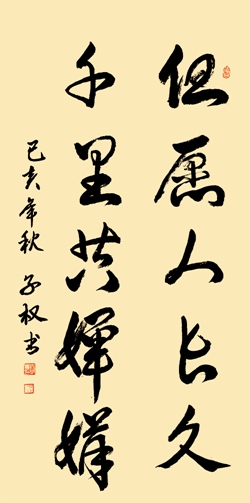 但愿人长久
千里共婵娟
己亥年秋 子权书